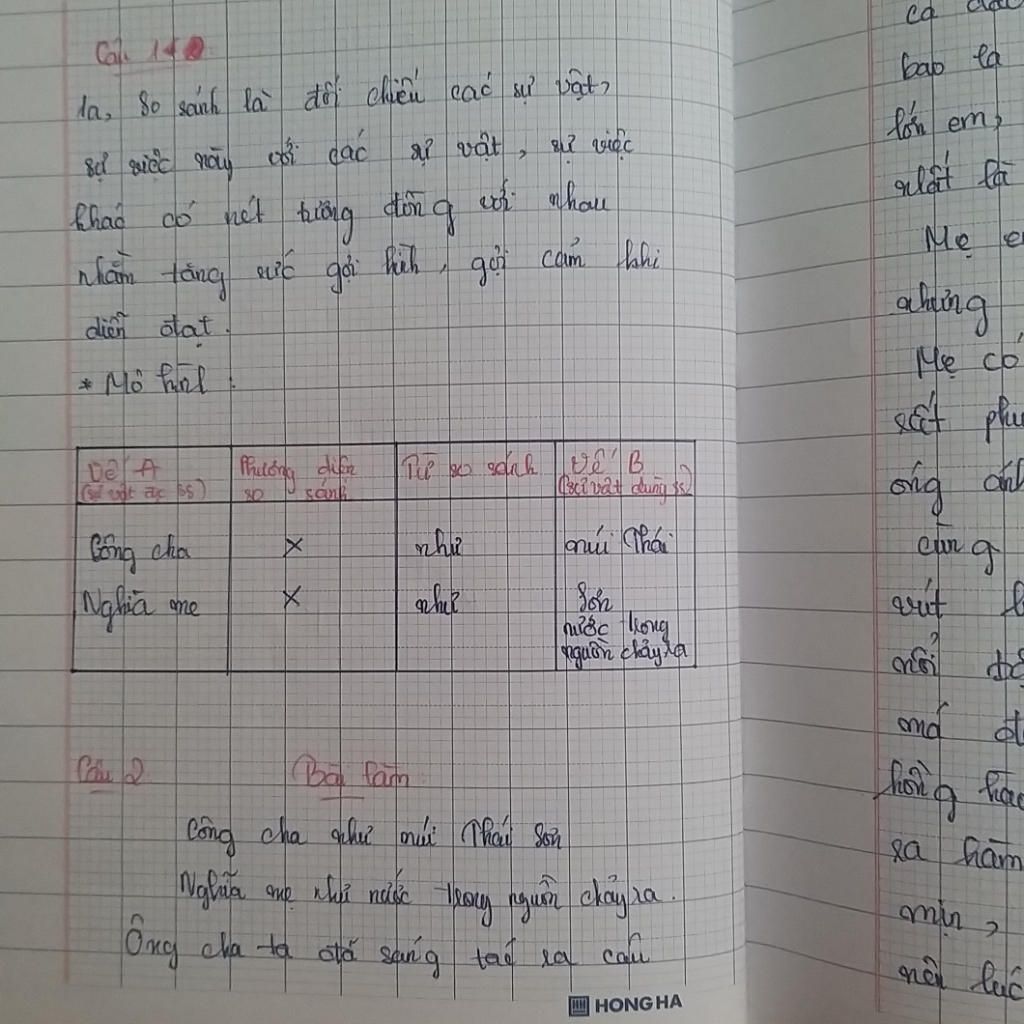 Câu 1
1a, So sánh là đối chiếu các sự vật,
sự việc này với các sự vật, sự việc
khác có nét tương đồng với nhau
nhằm tăng sức gợi hình, gợi cảm khi
diễn đạt.
* Mô hình:
Vế A Phương diện Từ so sánh Vế B
(sự vật đc ss) so sánh (sự vật dùng ss)
Công cha x như núi Thái
Nghĩa mẹ x như Sơn
nước trong
nguồn chảy ra
Câu 2 Bài làm
Công cha như núi Thái Sơn
Nghĩa mẹ như nước trong nguồn chảy ra.
Ông cha ta đã sáng tạo ra câu
HONG HA
ca
bao la
lớn em,
nhất là
Mẹ
những
Mẹ có
rất
óng
cũng
vút
nổi
hồng
da
mịn,
nên lúc